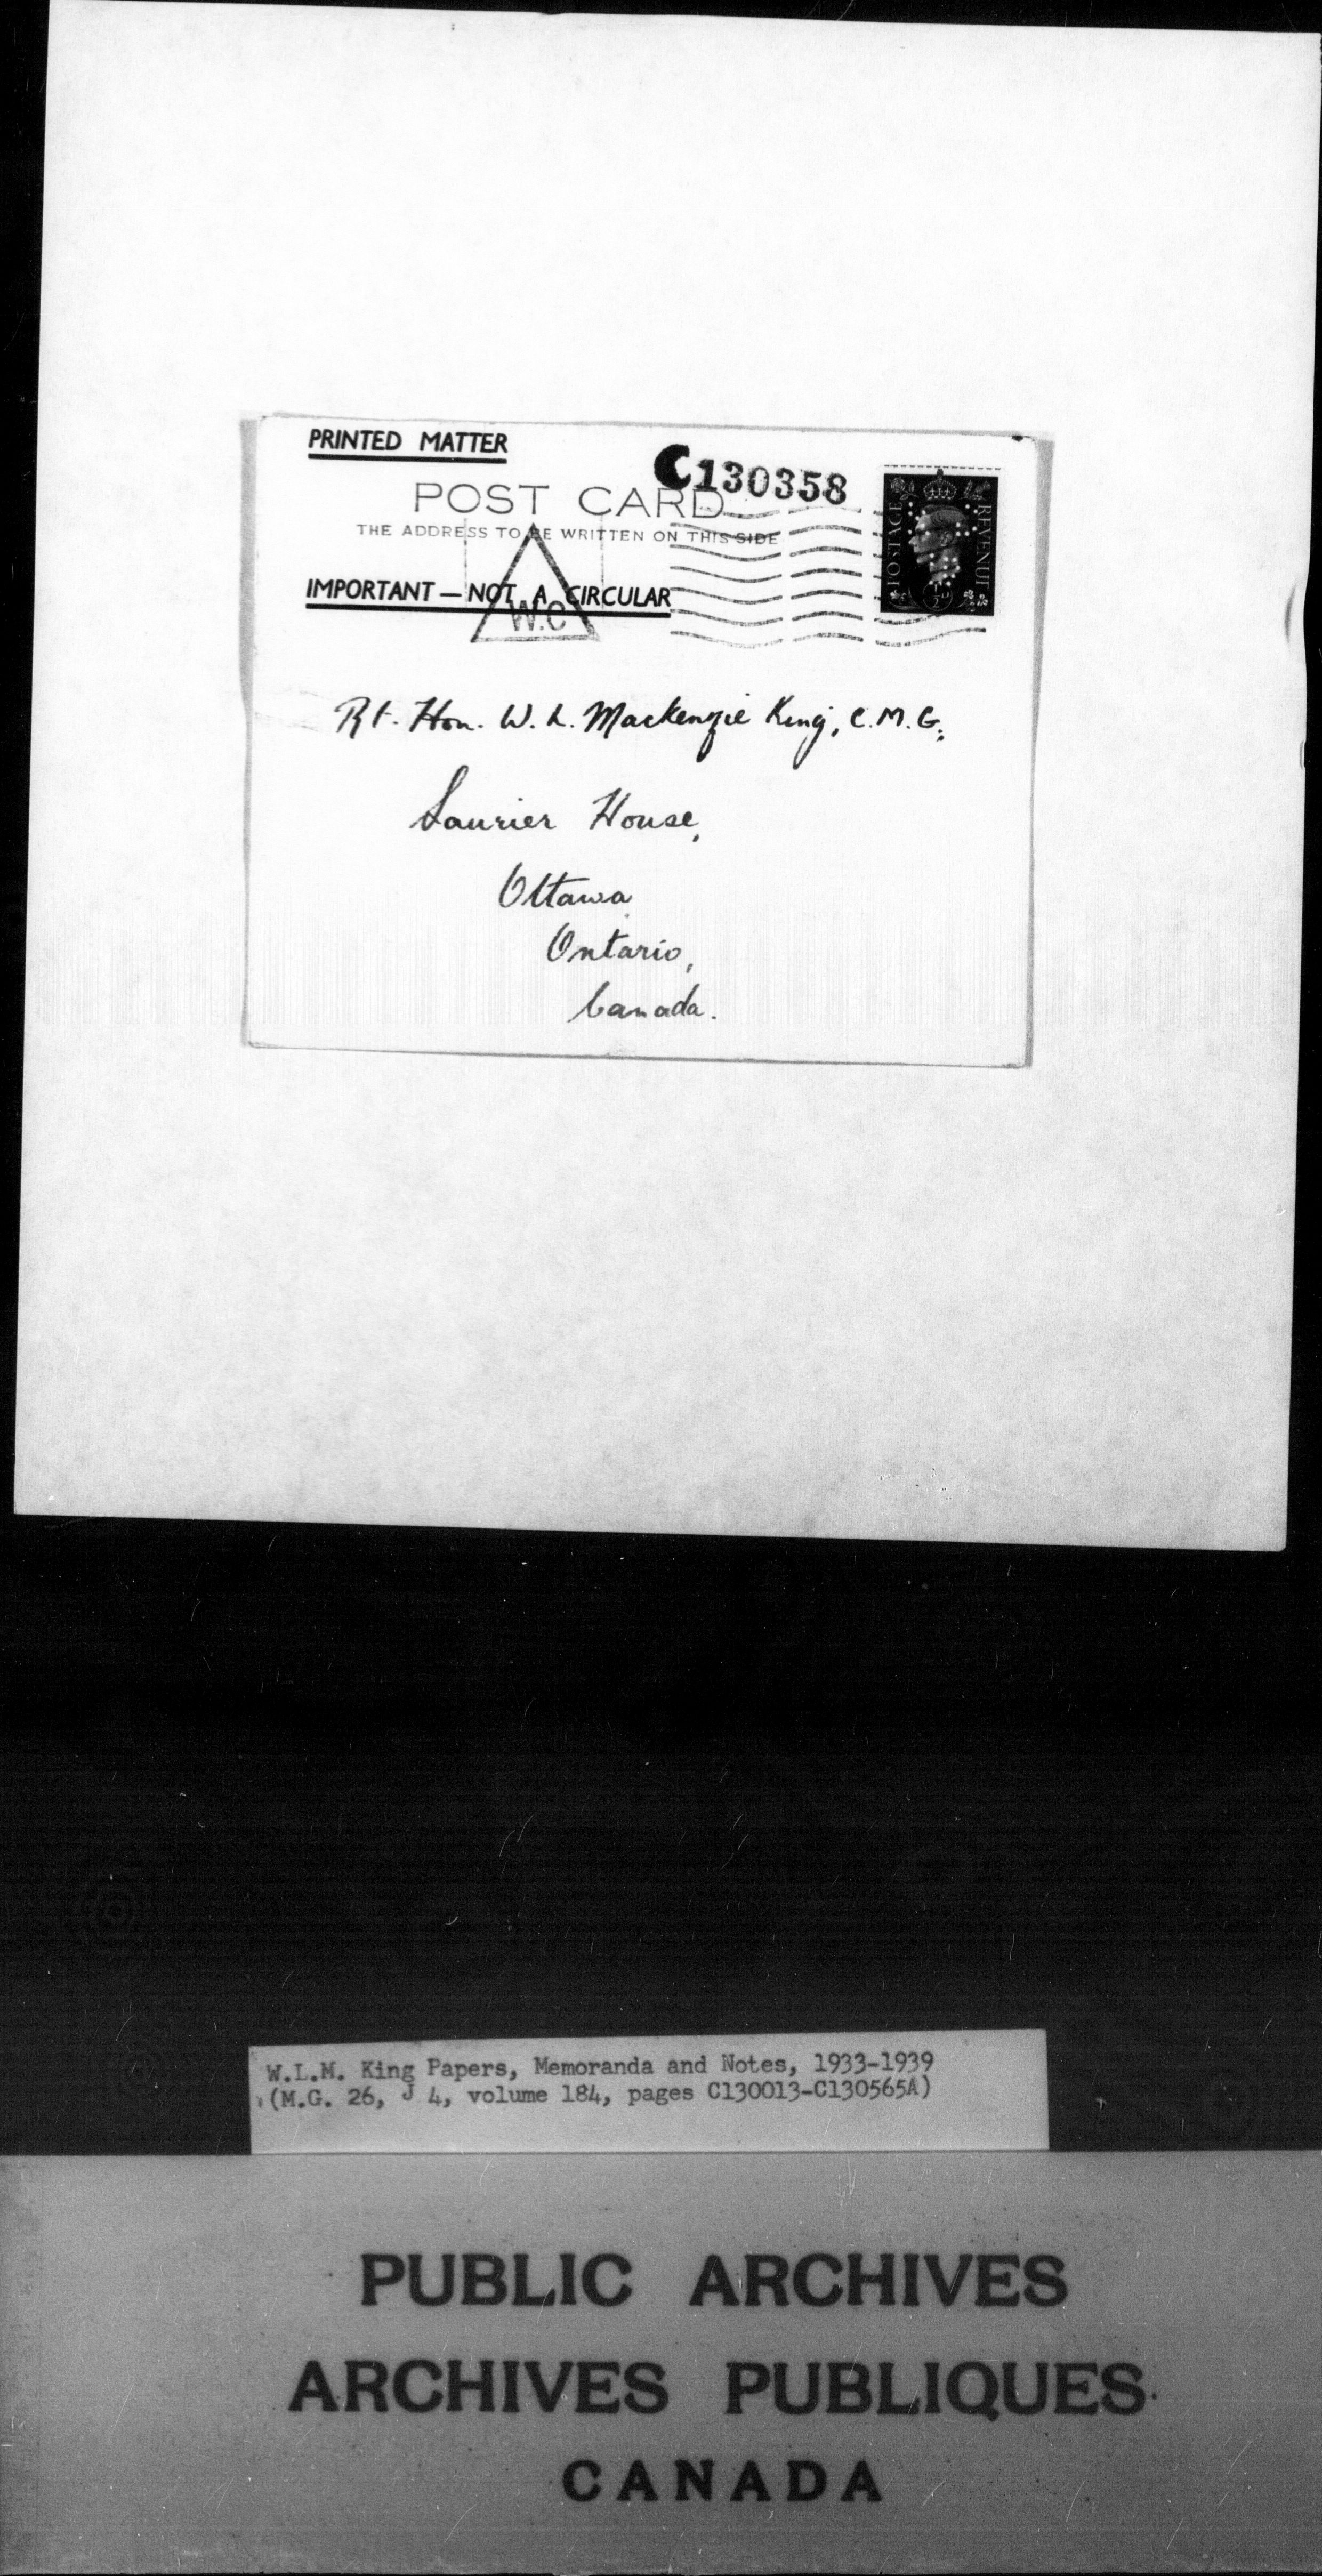 PRINTED MATTER
C130358
POST CARD
THE ADDRESS TO BE WRITTEN ON THIS SIDE
POSTAGE REVENUE
1/2 D
IMPORTANT — NOT A CIRCULAR
W.C
Rt. Hon. W. L. Mackenzie King, C.M.G.,
Laurier House,
Ottawa
Ontario,
Canada.
W.L.M. King Papers, Memoranda and Notes, 1933-1939
(M.G. 26, J 4, volume 184, pages C130013-C130565A)
PUBLIC ARCHIVES
ARCHIVES PUBLIQUES
CANADA